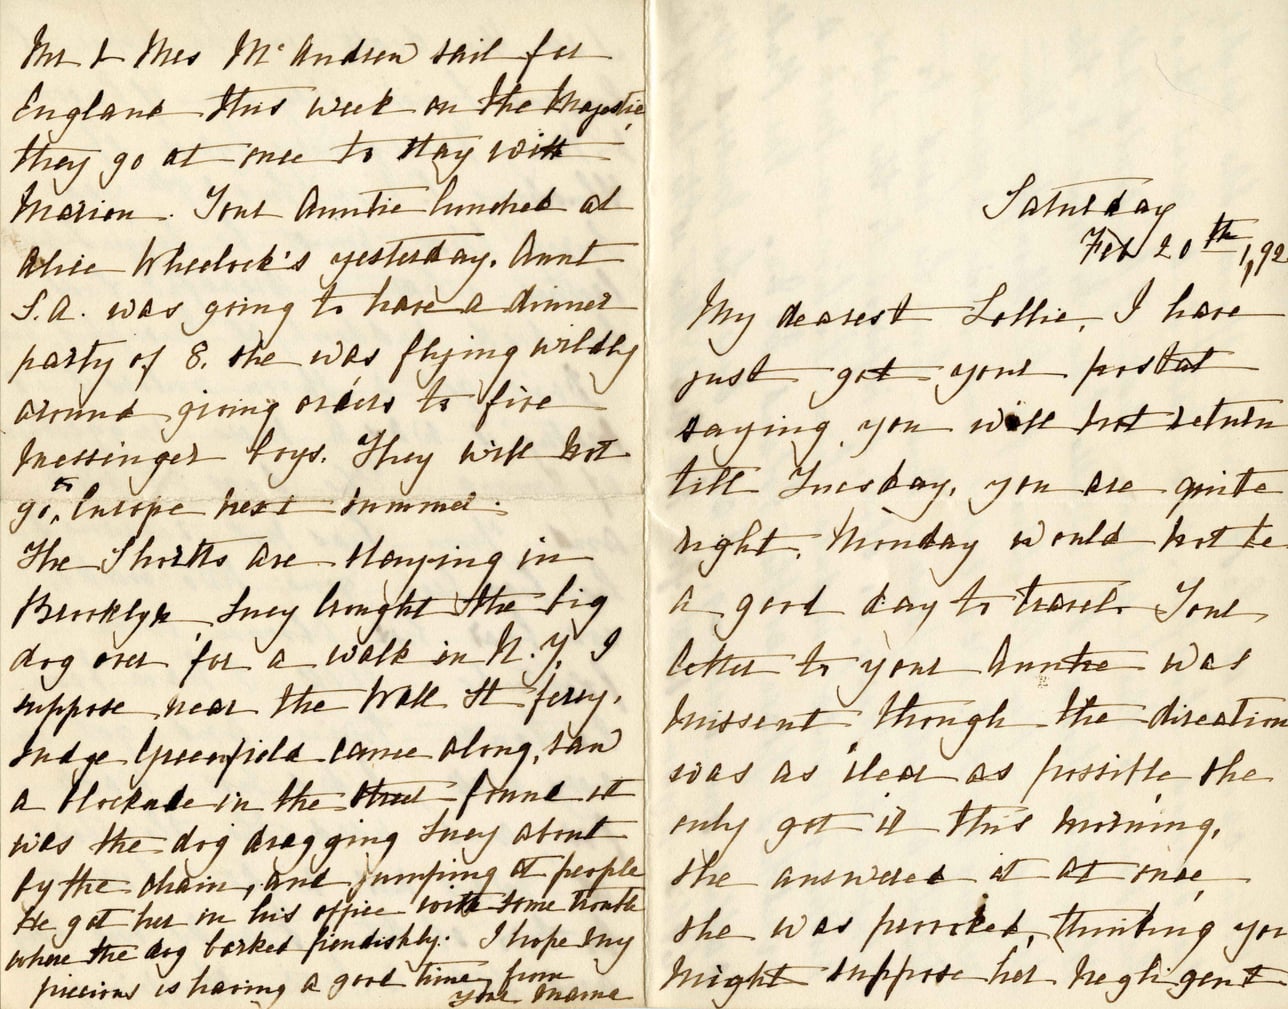 Saturday
Feb 20th 1,92
My dearest Lollie, I have
just got your postal
saying you will not return
till Tuesday, you are quite
right, Monday would not be
a good day to travel. Your
letter to your Auntie was
missent, though the direction
was as clear as possible, she
only got it this morning,
she answered it at once,
she was provoked, thinking you
might suppose her negligent
Mr & Mrs McAndrew sail for
England this week on the Majestic,
they go at once to stay with
Marion. Your Auntie lunched at
Alice Wheelock's yesterday. Aunt
S.A. was going to have a dinner
party of 8. she was flying wildly
around giving orders to five
messinger boys. They will not
go to Europe next summer.
The Shortts are staying in
Brooklyn, Lucy brought the big
dog over for a walk in N.Y. I
suppose near the Wall St ferry.
Judge Greenfield came along, saw
a blockade in the street found it
was the dog dragging Lucy about
by the chain, and jumping at people
He got her in his office with some trouble
where the dog barked fiendishly. I hope my
precious is having a good time, from
your Mama